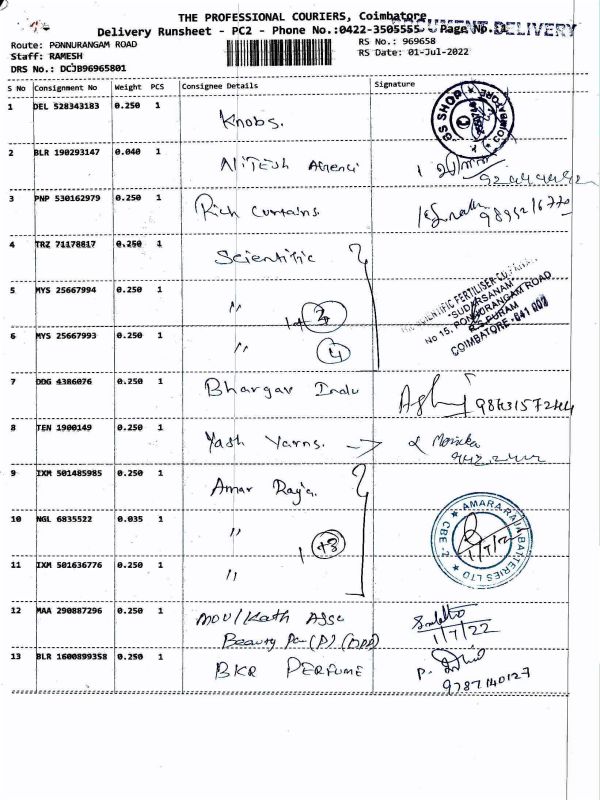 THE PROFESSIONAL COURIERS, Coimbatore
DOCUMENT DELIVERY
Delivery Runsheet - PC2 - Phone No.:0422-3505555 - Page No.1
Route: PONNURANGAM ROAD
RS No.: 969658
Staff: RAMESH
RS Date: 01-Jul-2022
DRS No.: DCJB96965801
S No Consignment No Weight PCS Consignee Details Signature
1 DEL 528343183 0.250 1 Knobs.
BS SHOP COIMBATORE
2 BLR 190293147 0.040 1 NITESH Agenci
3 PNP 530162979 0.250 1 Rich Curtains.
4 TRZ 71178817 0.250 1 Scientific
5 MYS 25667994 0.250 1 "
THE SCIENTIFIC FERTILISER CO.
"SUDARSANAM"
No 15, PONNURANGAM ROAD
R.S. PURAM
COIMBATORE - 641 002
6 MYS 25667993 0.250 1 " 4
7 DDG 4386076 0.250 1 Bhargav Indu
8 TEN 1900149 0.250 1 Yash Yarns.
9 IXM 501485985 0.250 1 Amar Raja.
10 NGL 6835522 0.035 1 "
AMARA RAJA BATTERIES LTD CBE-2
1/7/22
11 IXM 501636776 0.250 1 "
12 MAA 290887296 0.250 1
1/7/22
13 BLR 1600899358 0.250 1 BKR PERFUME
9787140127